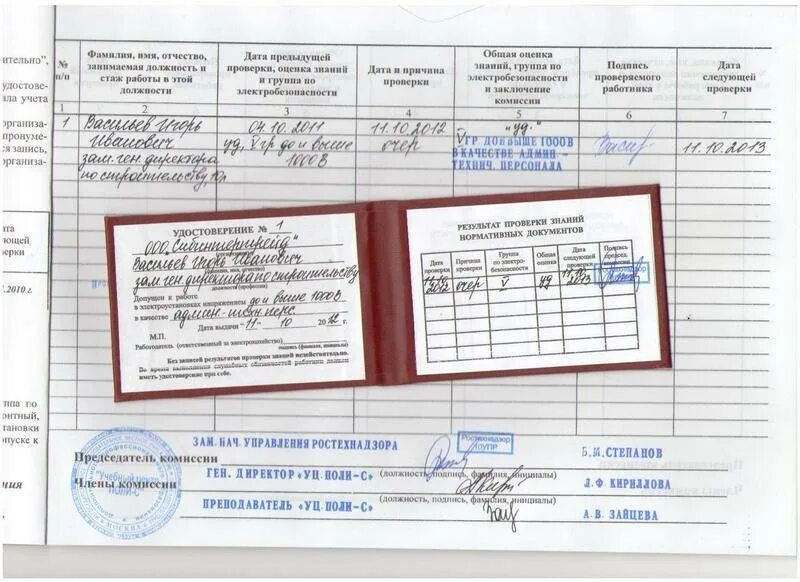 ительно",
удостове-
ала учета
организа-
пронуме-
запись,
организа-
ата
ующей
верки
.2010 г.
уппа по
онтный,
тановки
опуске к
ния
№ п/п
Фамилия, имя, отчество,
занимаемая должность и
стаж работы в этой
должности
Дата предыдущей
проверки, оценка знаний
и группа по
электробезопасности
Дата и причина
проверки
Общая оценка
знаний, группа по
электробезопасности
и заключение
комиссии
Подпись
проверяемого
работника
Дата
следующей
проверки
1 2 3 4 5 6 7
1 Васильев Игорь 04.10.2011 11.10.2012 "уд."
Иванович уд, V гр до и выше очер V ГР ДО И ВЫШЕ 1000 В 11.10.2013
зам.ген директора 1000В В КАЧЕСТВЕ АДМИН.-
по строительству, ТЕХНИЧ. ПЕРСОНАЛА
УДОСТОВЕРЕНИЕ № 1
ООО "Сибинторгтрейд"
Васильев Игорь Иванович
(фамилия, имя, отчество)
зам ген директора по строительству
должность (профессия)
Допущен к работе
в электроустановках напряжением до и выше 1000В
в качестве админ-техн перс.
Дата выдачи "11" 10 2012 г.
М.П.
Работодатель (ответственный за электрохозяйство)
подпись (фамилия, инициалы)
Без записей результатов проверки знаний недействительно.
Во время выполнения служебных обязанностей работник должен
иметь удостоверение при себе.
РЕЗУЛЬТАТ ПРОВЕРКИ ЗНАНИЙ
НОРМАТИВНЫХ ДОКУМЕНТОВ
Дата
проверки
Причина
проверки
Группа
по электро-
безопасности
Общая
оценка
Дата
следующей
проверки
Подпись
председ.
комиссии
11.10 2012 очер V уд 11.10 2013
ЗАМ. НАЧ. УПРАВЛЕНИЯ РОСТЕХНАДЗОРА
Ростехнадзор
МОУПР
Председатель комиссии Б.М.СТЕПАНОВ
(должность, подпись, фамилия, инициалы)
Члены комиссии ГЕН. ДИРЕКТОР «УЦ ПОЛИ-С» Л.Ф.КИРИЛЛОВА
(должность, подпись, фамилия, инициалы)
ПРЕПОДАВАТЕЛЬ «УЦ ПОЛИ-С» А.В.ЗАЙЦЕВА
"Учебный центр
ПОЛИ-С"
МОСКВА